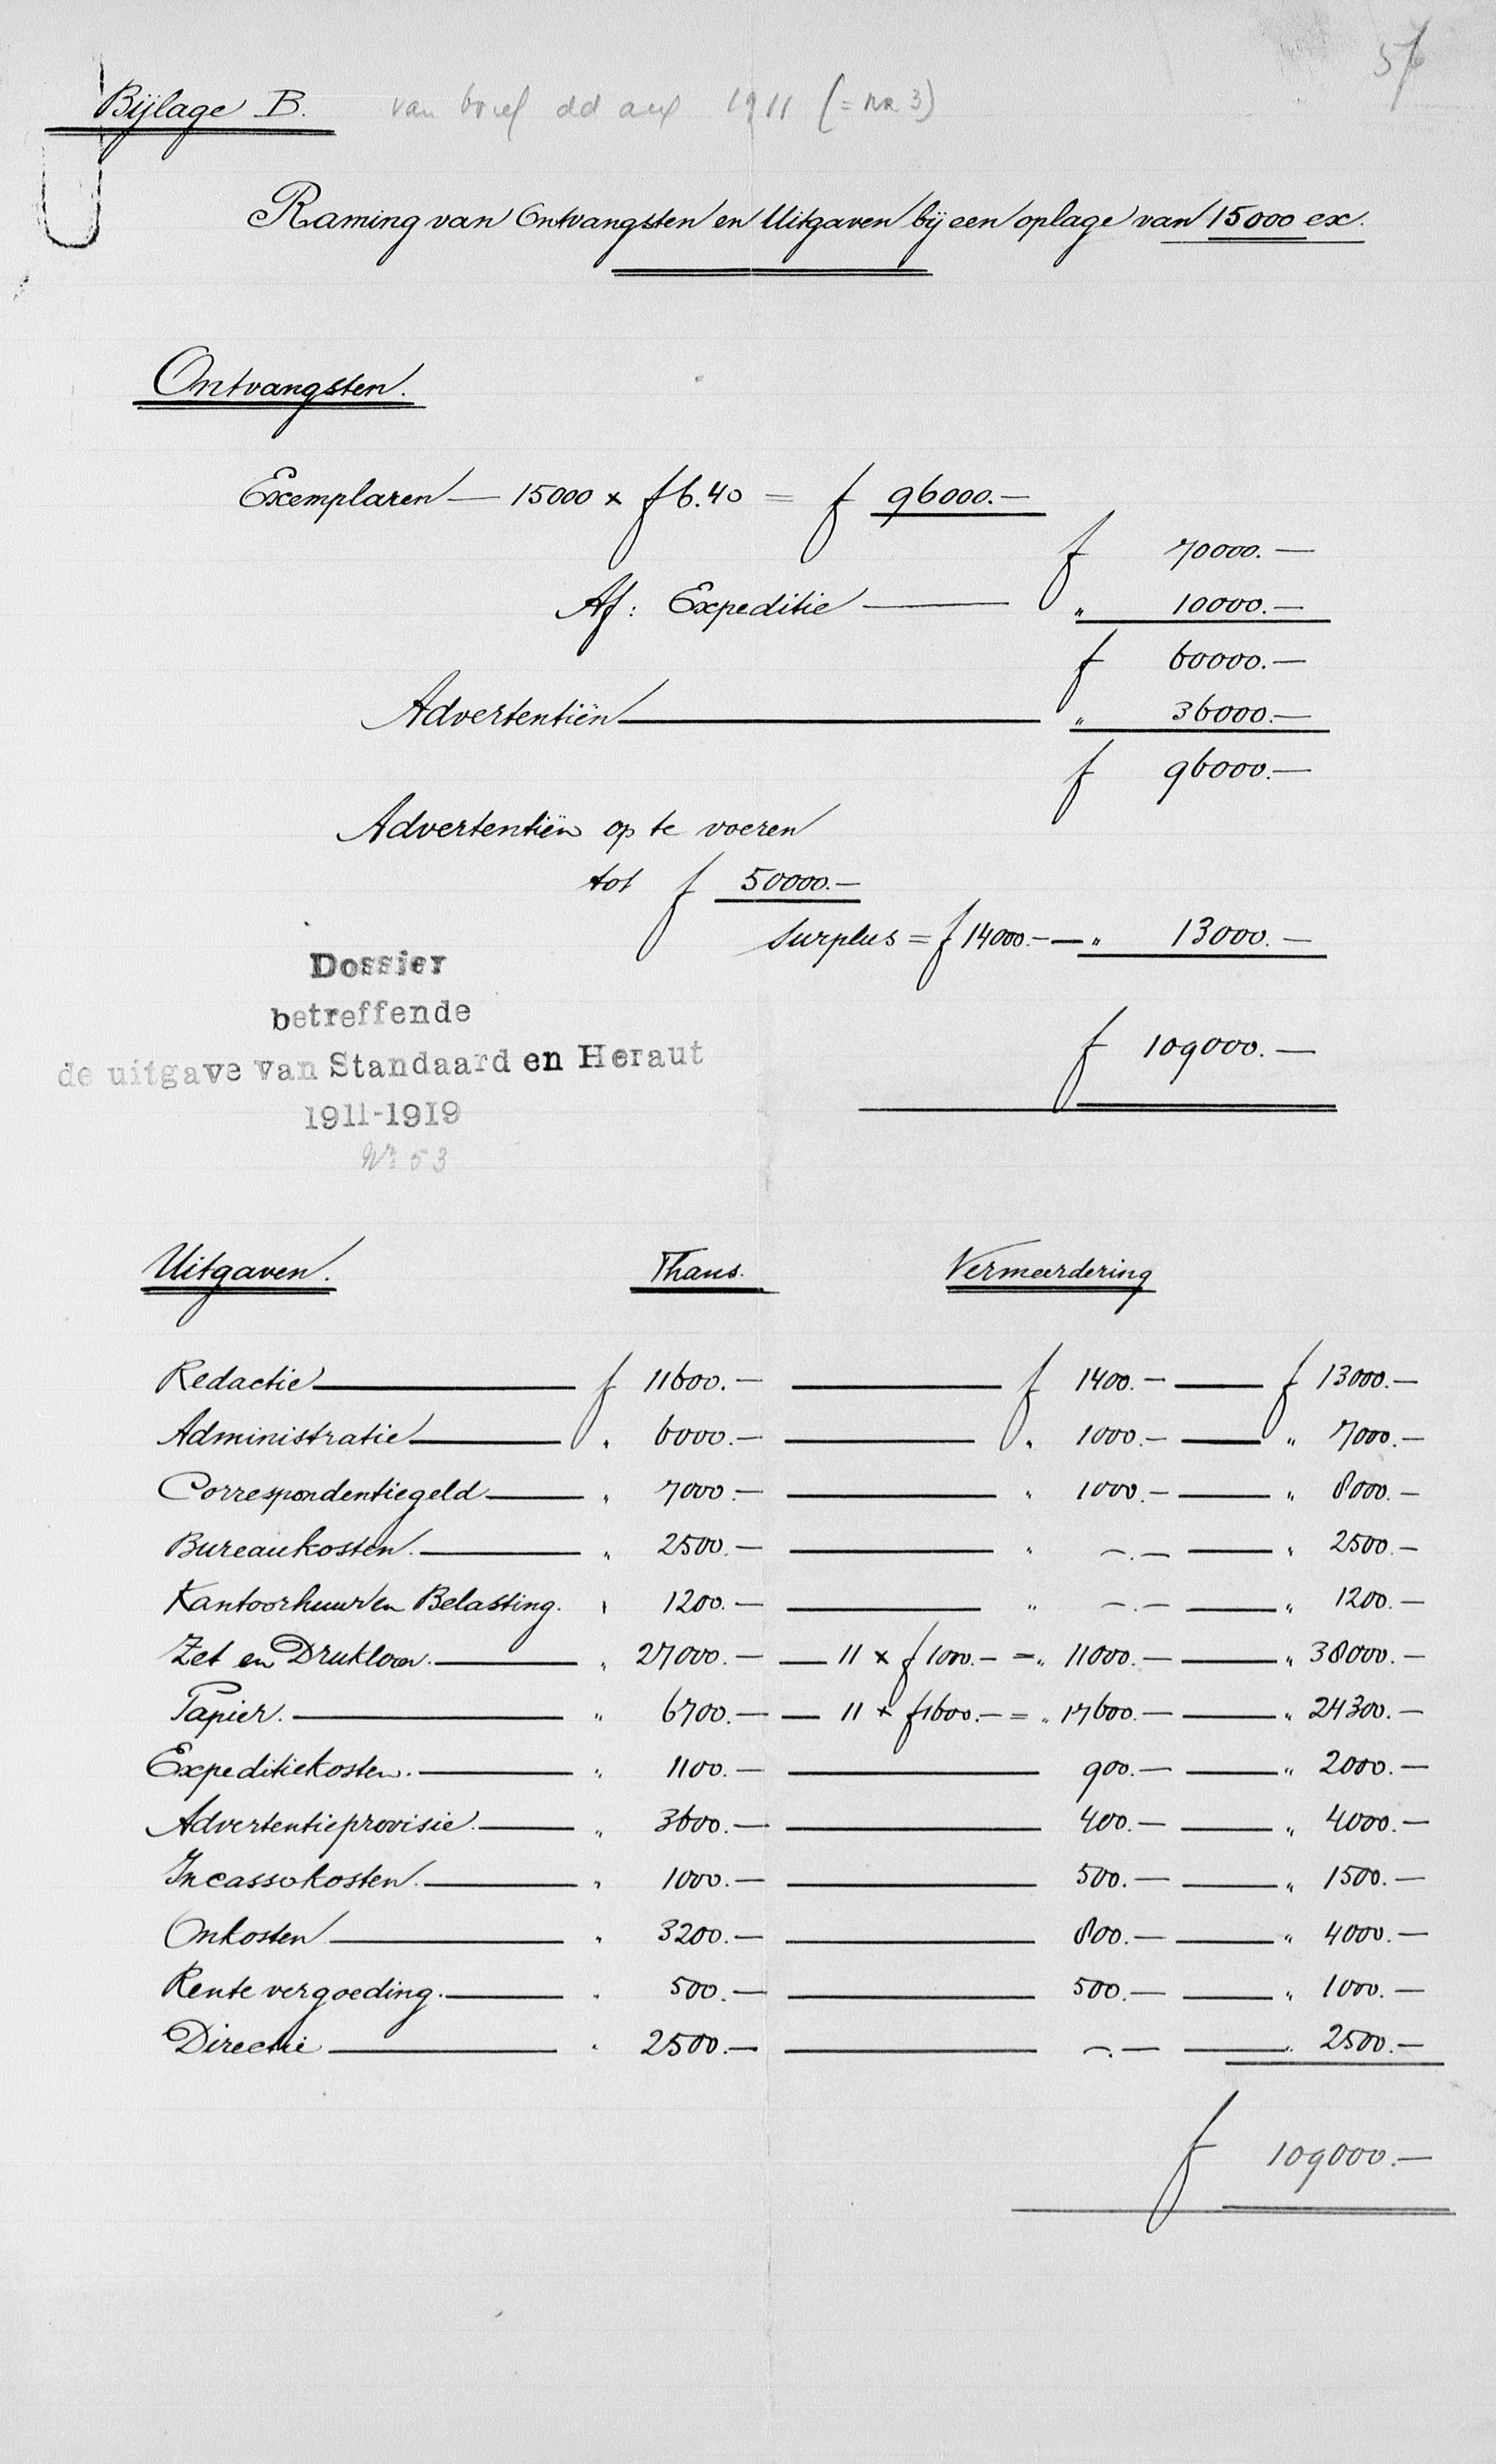 Bijlage B. van brief dd aug 1911 (= nr 3)
Raming van Ontvangsten en Uitgaven bij een oplage van 15000 ex.
Ontvangsten.
Exemplaren — 15000 x f 6.40 = f 96000.—
f 70000.—
Af: Expeditie — " 10000.—
f 60000.—
Advertentiën — " 36000.—
f 96000.—
Advertentiën op te voeren
tot f 50000.—
Surplus = f 14000.— — " 13000.—
f 109000.—
Dossier
betreffende
de uitgave van Standaard en Heraut
1911-1919
Nr 53
Uitgaven. Thans. Vermeerdering
Redactie — f 11600.— — f 1400.— — f 13000.—
Administratie — " 6000.— — " 1000.— — " 7000.—
Correspondentiegeld — " 7000.— — " 1000.— — " 8000.—
Bureaukosten. — " 2500.— — " —.— — " 2500.—
Kantoorhuur en Belasting. " 1200.— — " —.— — " 1200.—
Zet en Drukloon. — " 27000.— — 11 x f 1000.— = " 11000.— — " 38000.—
Papier. — " 6700.— — 11 x f 1600.— = " 17600.— — " 24300.—
Expeditiekosten. — " 1100.— — 900.— — " 2000.—
Advertentieprovisie. — " 3600.— — 400.— — " 4000.—
Incassokosten. — " 1000.— — 500.— — " 1500.—
Onkosten — " 3200.— — 800.— — " 4000.—
Rente vergoeding. — " 500.— — 500.— — " 1000.—
Directie — " 2500.— — —.— — " 2500.—
f 109000.—